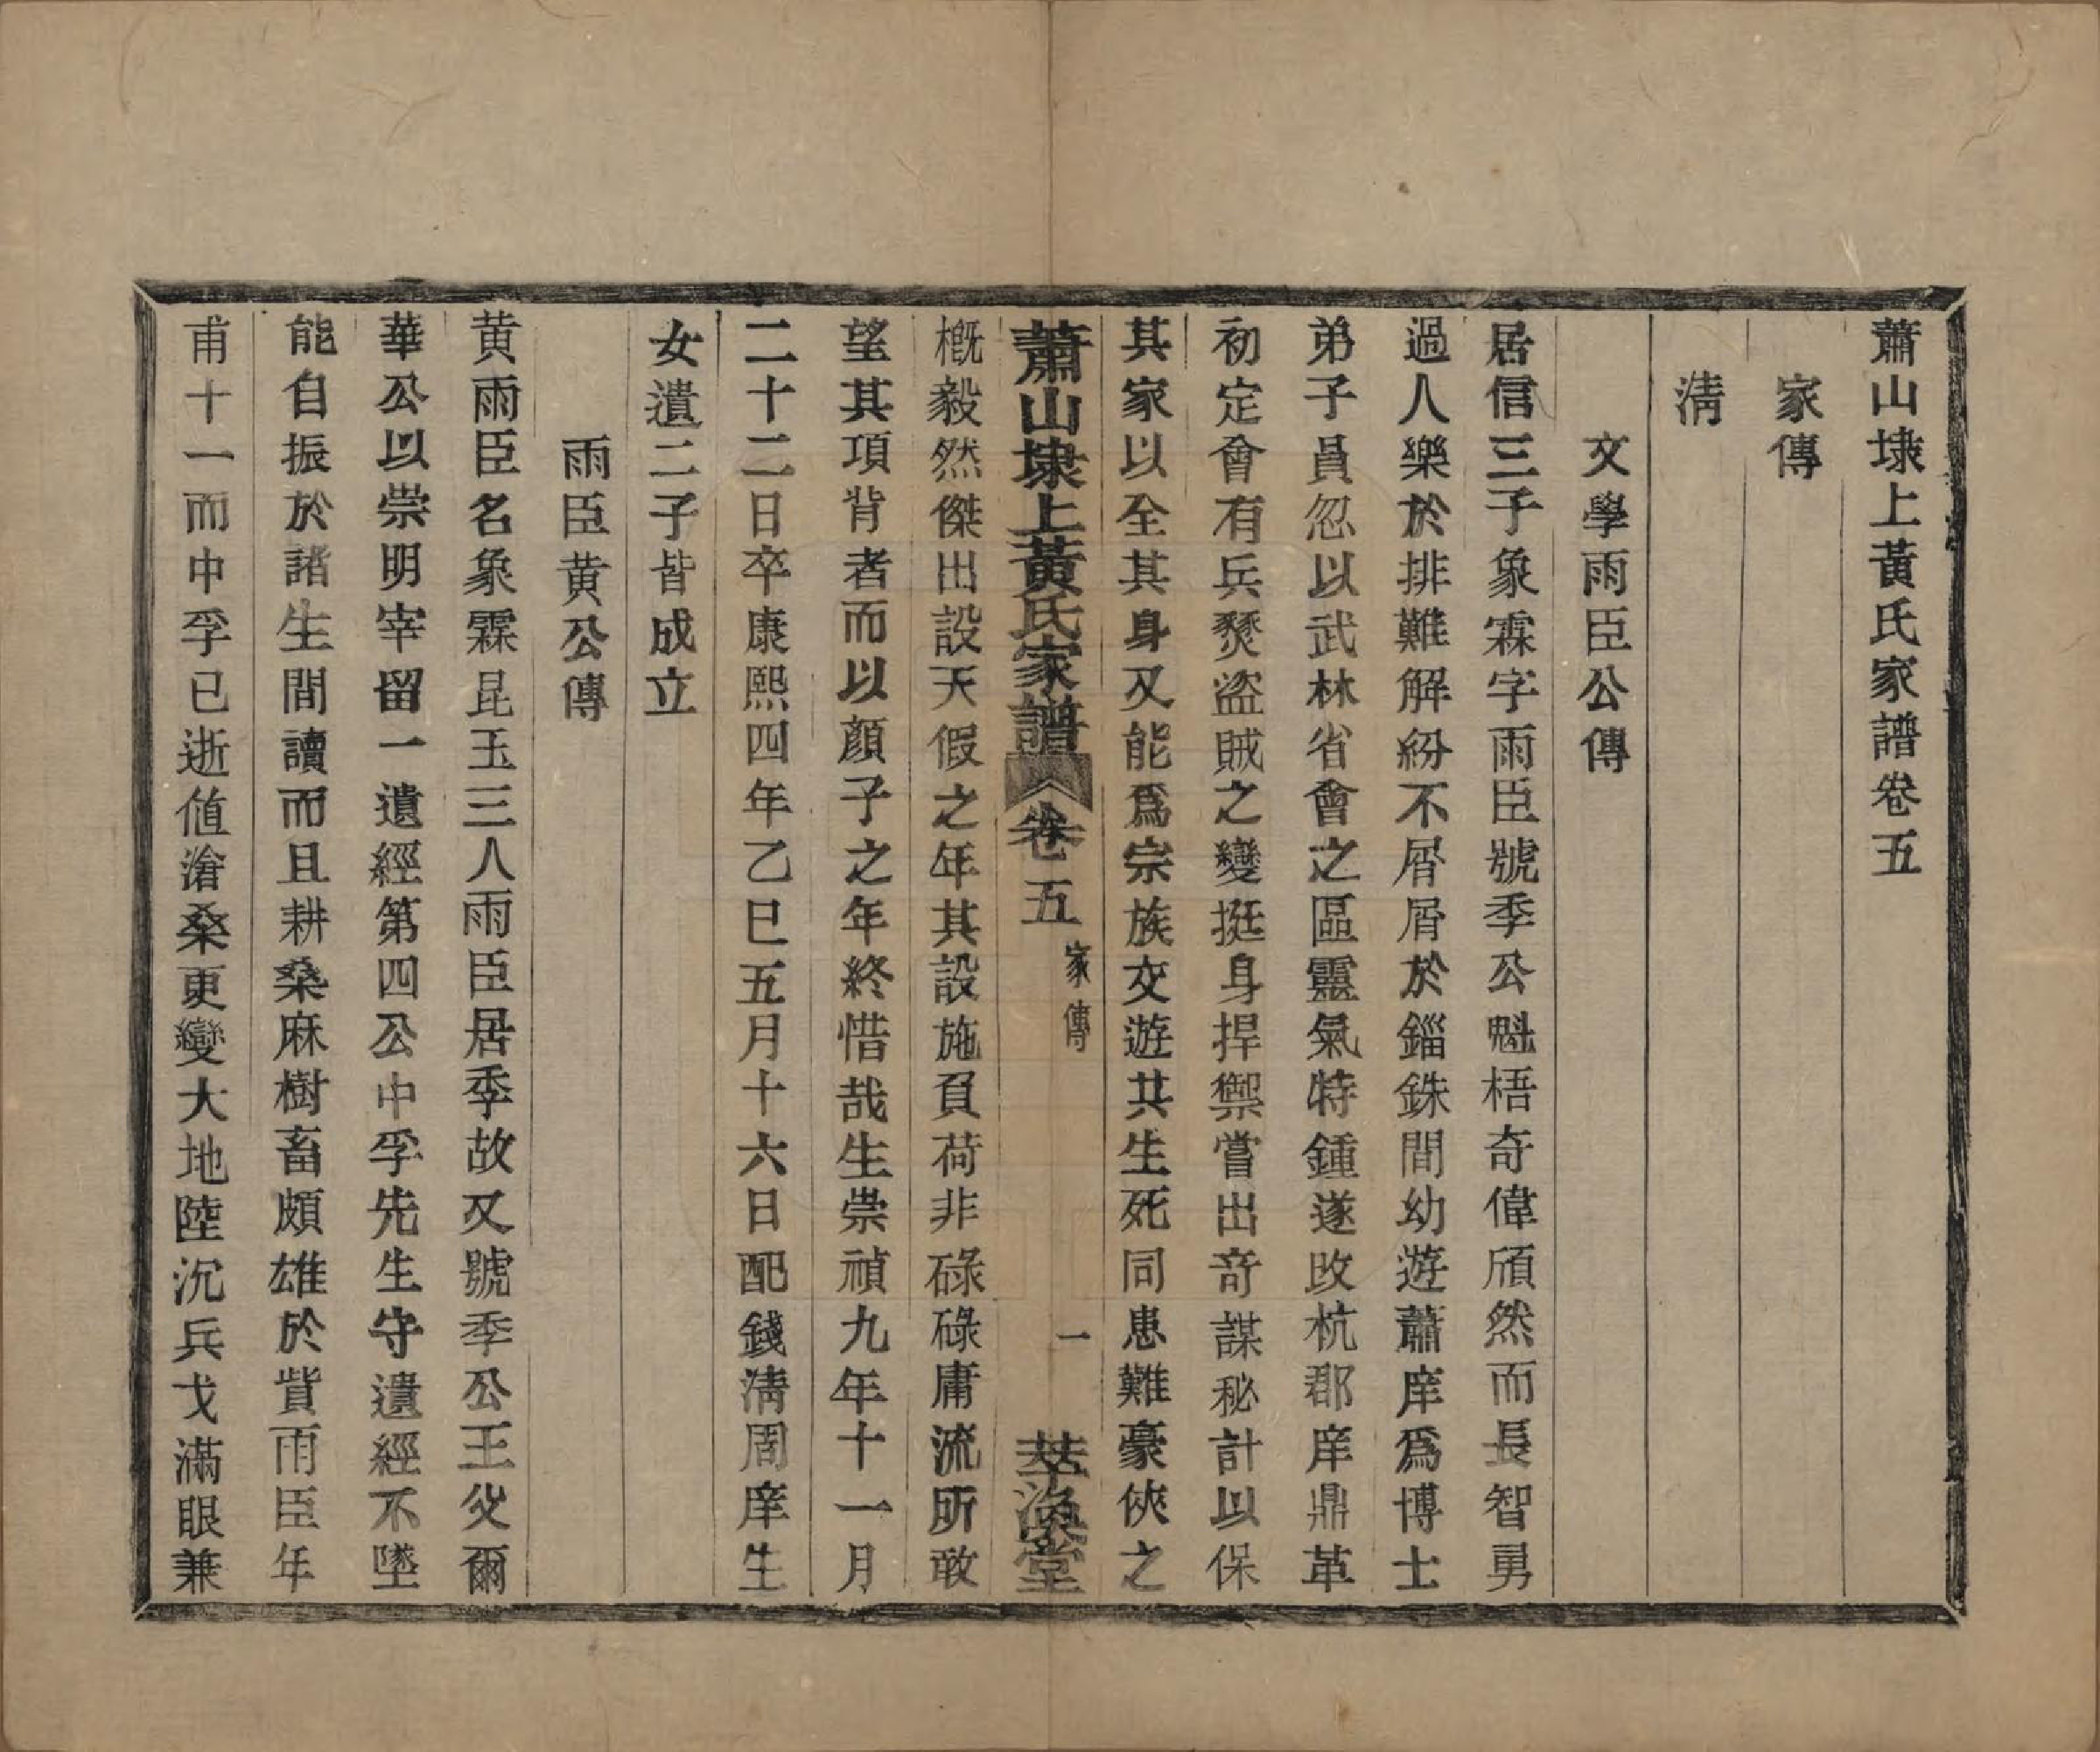 蕭山埭上黃氏家譜卷五
家傳
淸
文學雨臣公傳
居信三子象霖字雨臣號季公魁梧奇偉頎然而長智勇
過人樂於排難解紛不屑屑於錙銖間幼遊蕭庠爲博士
弟子員忽以武林省會之區靈氣特鍾遂改杭郡庠鼎革
初定會有兵燹盜賊之變挺身捍禦嘗出奇謀秘計以保
其家以全其身又能爲宗族交遊共生死同患難豪俠之
蕭山埭上黃氏家譜
卷五
家傳
一
萃渙堂
概毅然傑出設天假之年其設施負荷非碌碌庸流所敢
望其項背者而以顏子之年終惜哉生崇禎九年十一月
二十二日卒康熙四年乙巳五月十六日配錢淸周庠生
女遺二子皆成立
雨臣黃公傳
黃雨臣名象霖昆玉三人雨臣居季故又號季公王父爾
華公以崇明宰留一遺經第四公中孚先生守遺經不墜
能自振於諸生間讀而且耕桑麻樹畜頗雄於貲雨臣年
甫十一而中孚已逝値滄桑更變大地陸沉兵戈滿眼兼